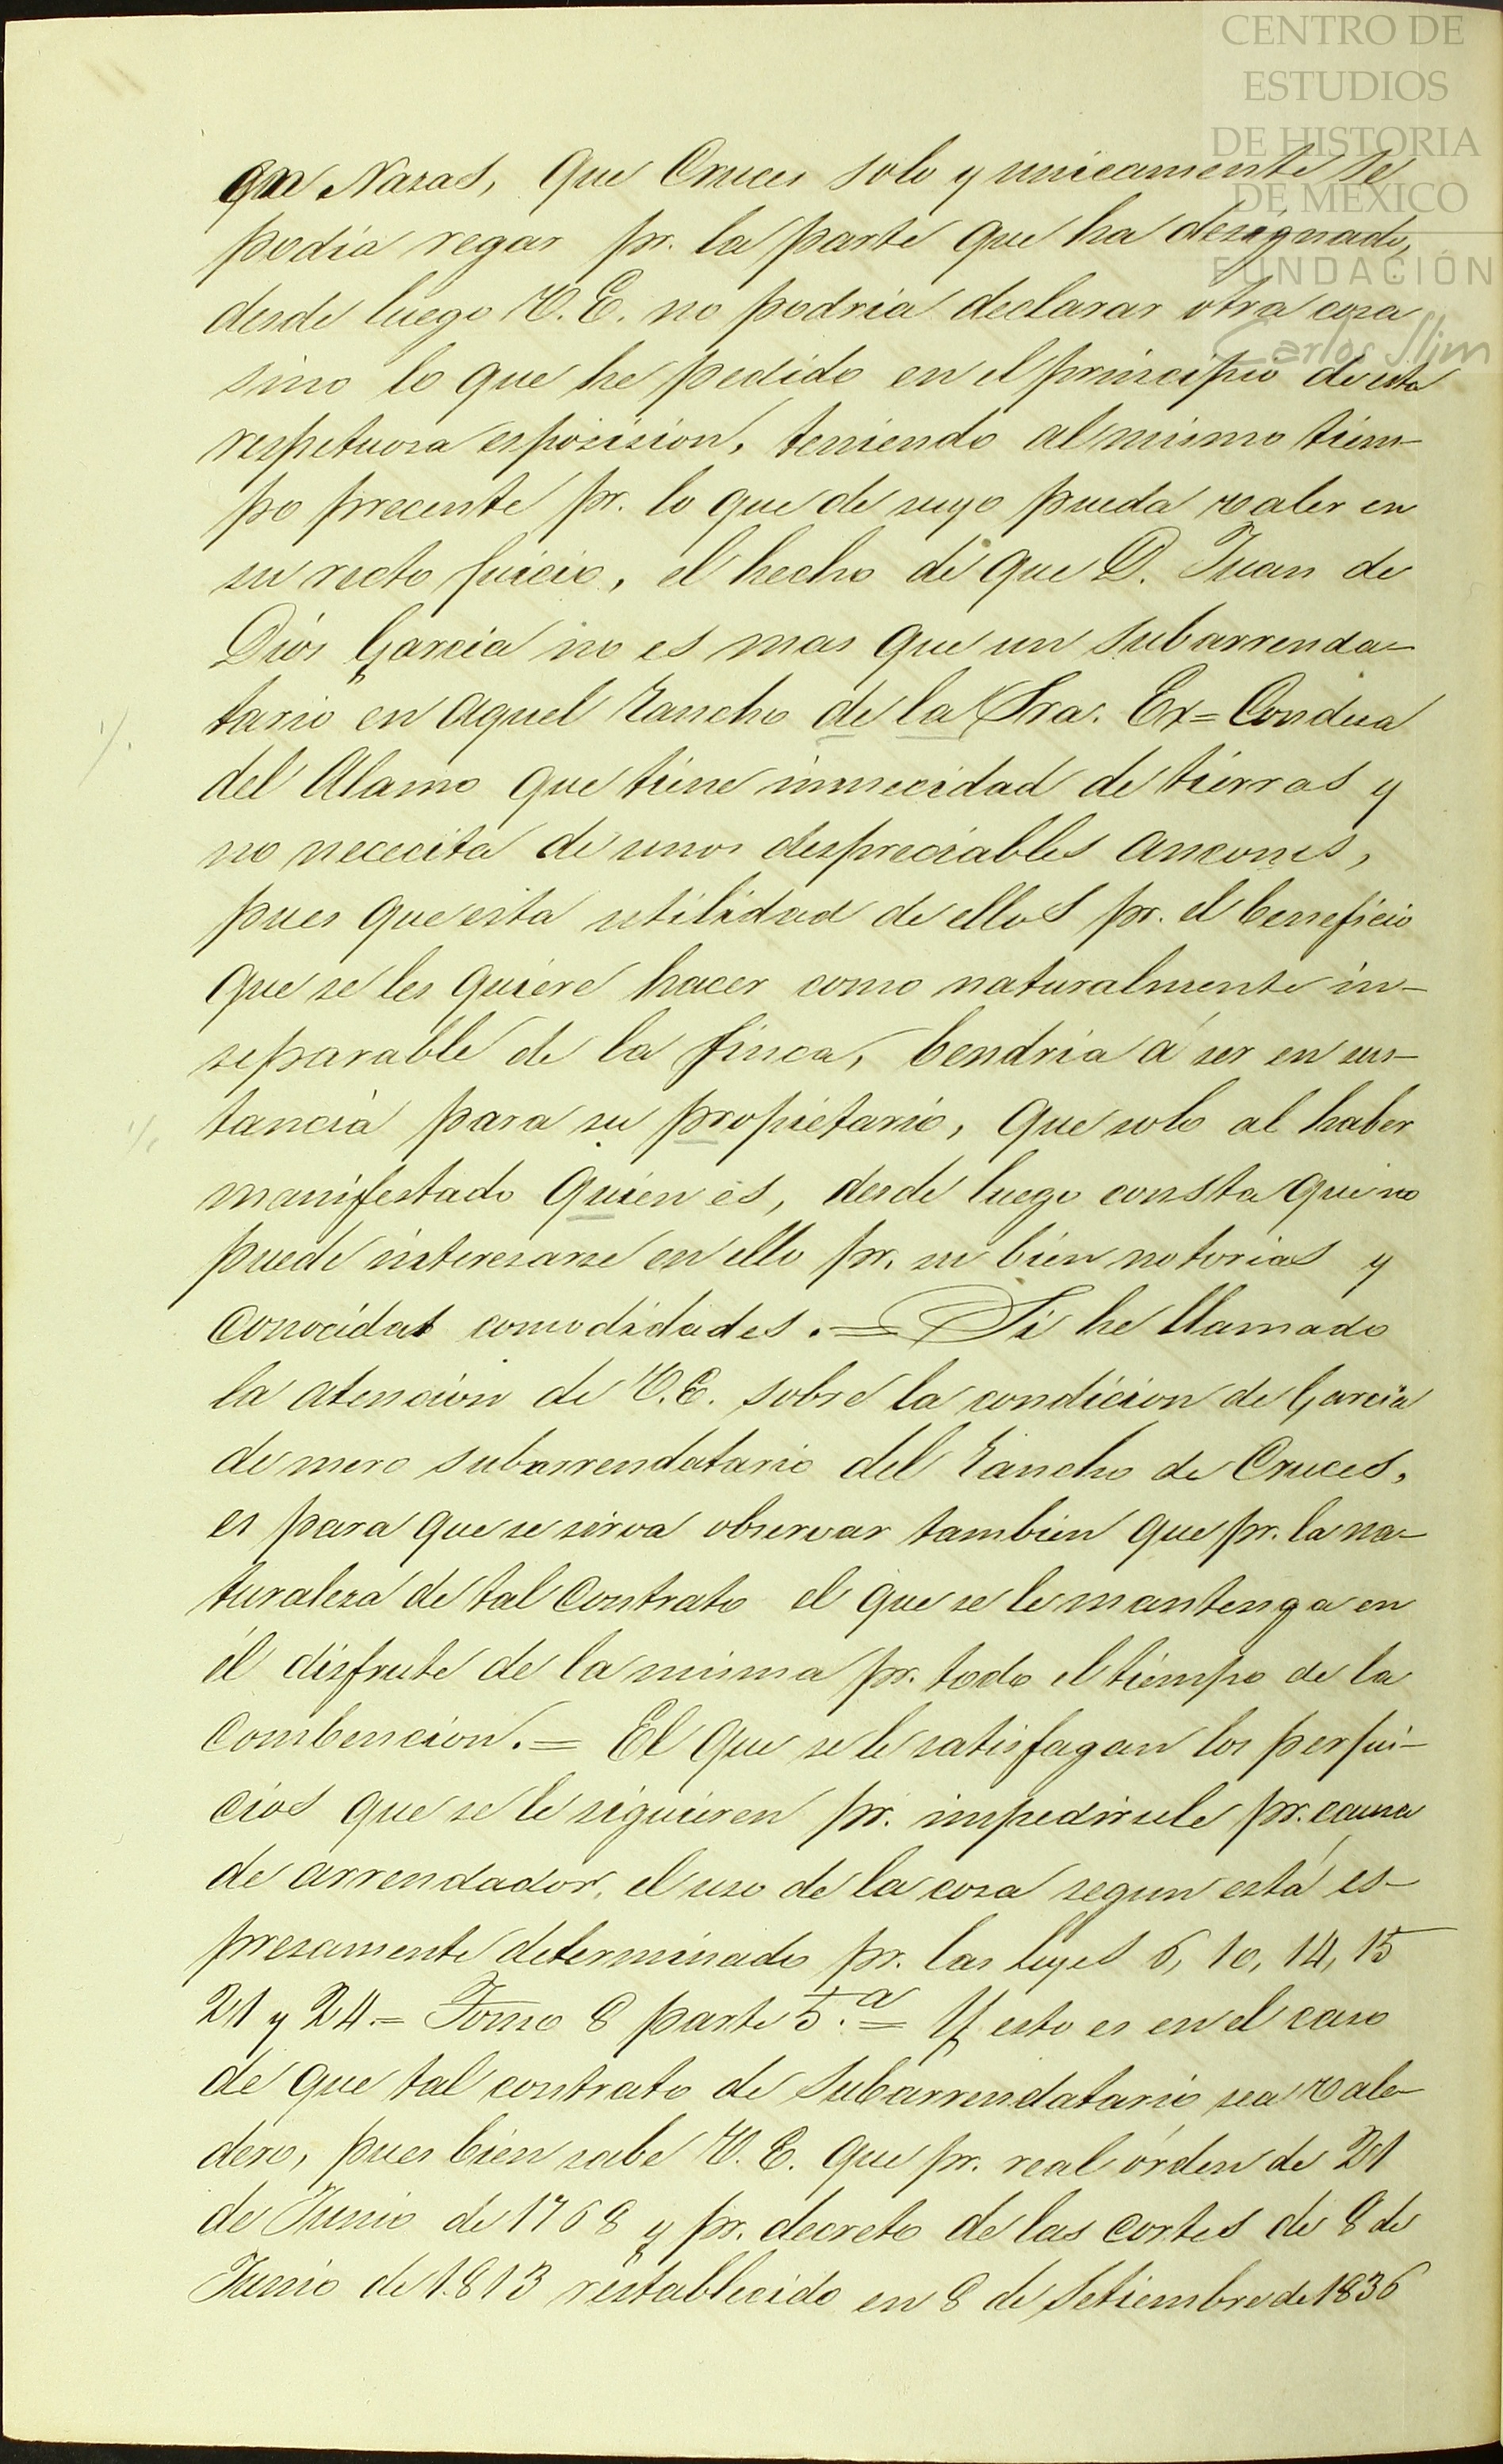 CENTRO DE
ESTUDIOS
DE HISTORIA
DE MÉXICO
FUNDACIÓN
Carlos Slim
que Nazas, que Cruces solo y unicamente se
podia regar pr. la parte que ha designado,
desde luego V. E. no podria declarar otra cosa
sino lo que he pedido en el principio de esta
respetuosa esposision, teniendo al mismo tiem-
po precente pr. lo que de suyo pueda valer en
su recto juicio, el hecho de que D. Juan de
Dios Garcia no es mas que un subarrenda-
tario en aquel rancho de la Sra. Ex=Condesa
del Alamo que tiene inmecidad de tierras y
no nececita de unos despreciables ancones,
pues que esta utilidad de ellos pr. el beneficio
que se les quiere hacer como naturalmente in-
separable de la finca, bendria á ser en sus-
tancia para su propietario, que solo al haber
manifestado quien es, desde luego consta que no
puede interesarse en ello pr. su bien notorias y
conocidas comodidades.= Si he llamado
la atencion de V. E. sobre la condicion de Garcia
de mero subarrendatario del rancho de Cruces,
es para que se sirva observar tambien que pr. la na-
turaleza de tal contrato el que se le mantenga en
el disfrute de la misma pr. todo el tiempo de la
combencion.= El que se le satisfagan los perjui-
cios que se le siguieren pr. impedirsele pr. causa
de arrendador, el uso de la cosa segun está es-
presamente determinado pr. las leyes 6, 10, 14, 15
21 y 24.= Tomo 8 parte 5.a= Y esto es en el caso
de que tal contrato de subarrendatario sea vale-
dero, pues bien sabe V. E. que pr. real órden de 21
de Junio de 1768 y pr. decreto de las cortes de 8 de
Junio de 1813 restablecido en 8 de Setiembre de 1836